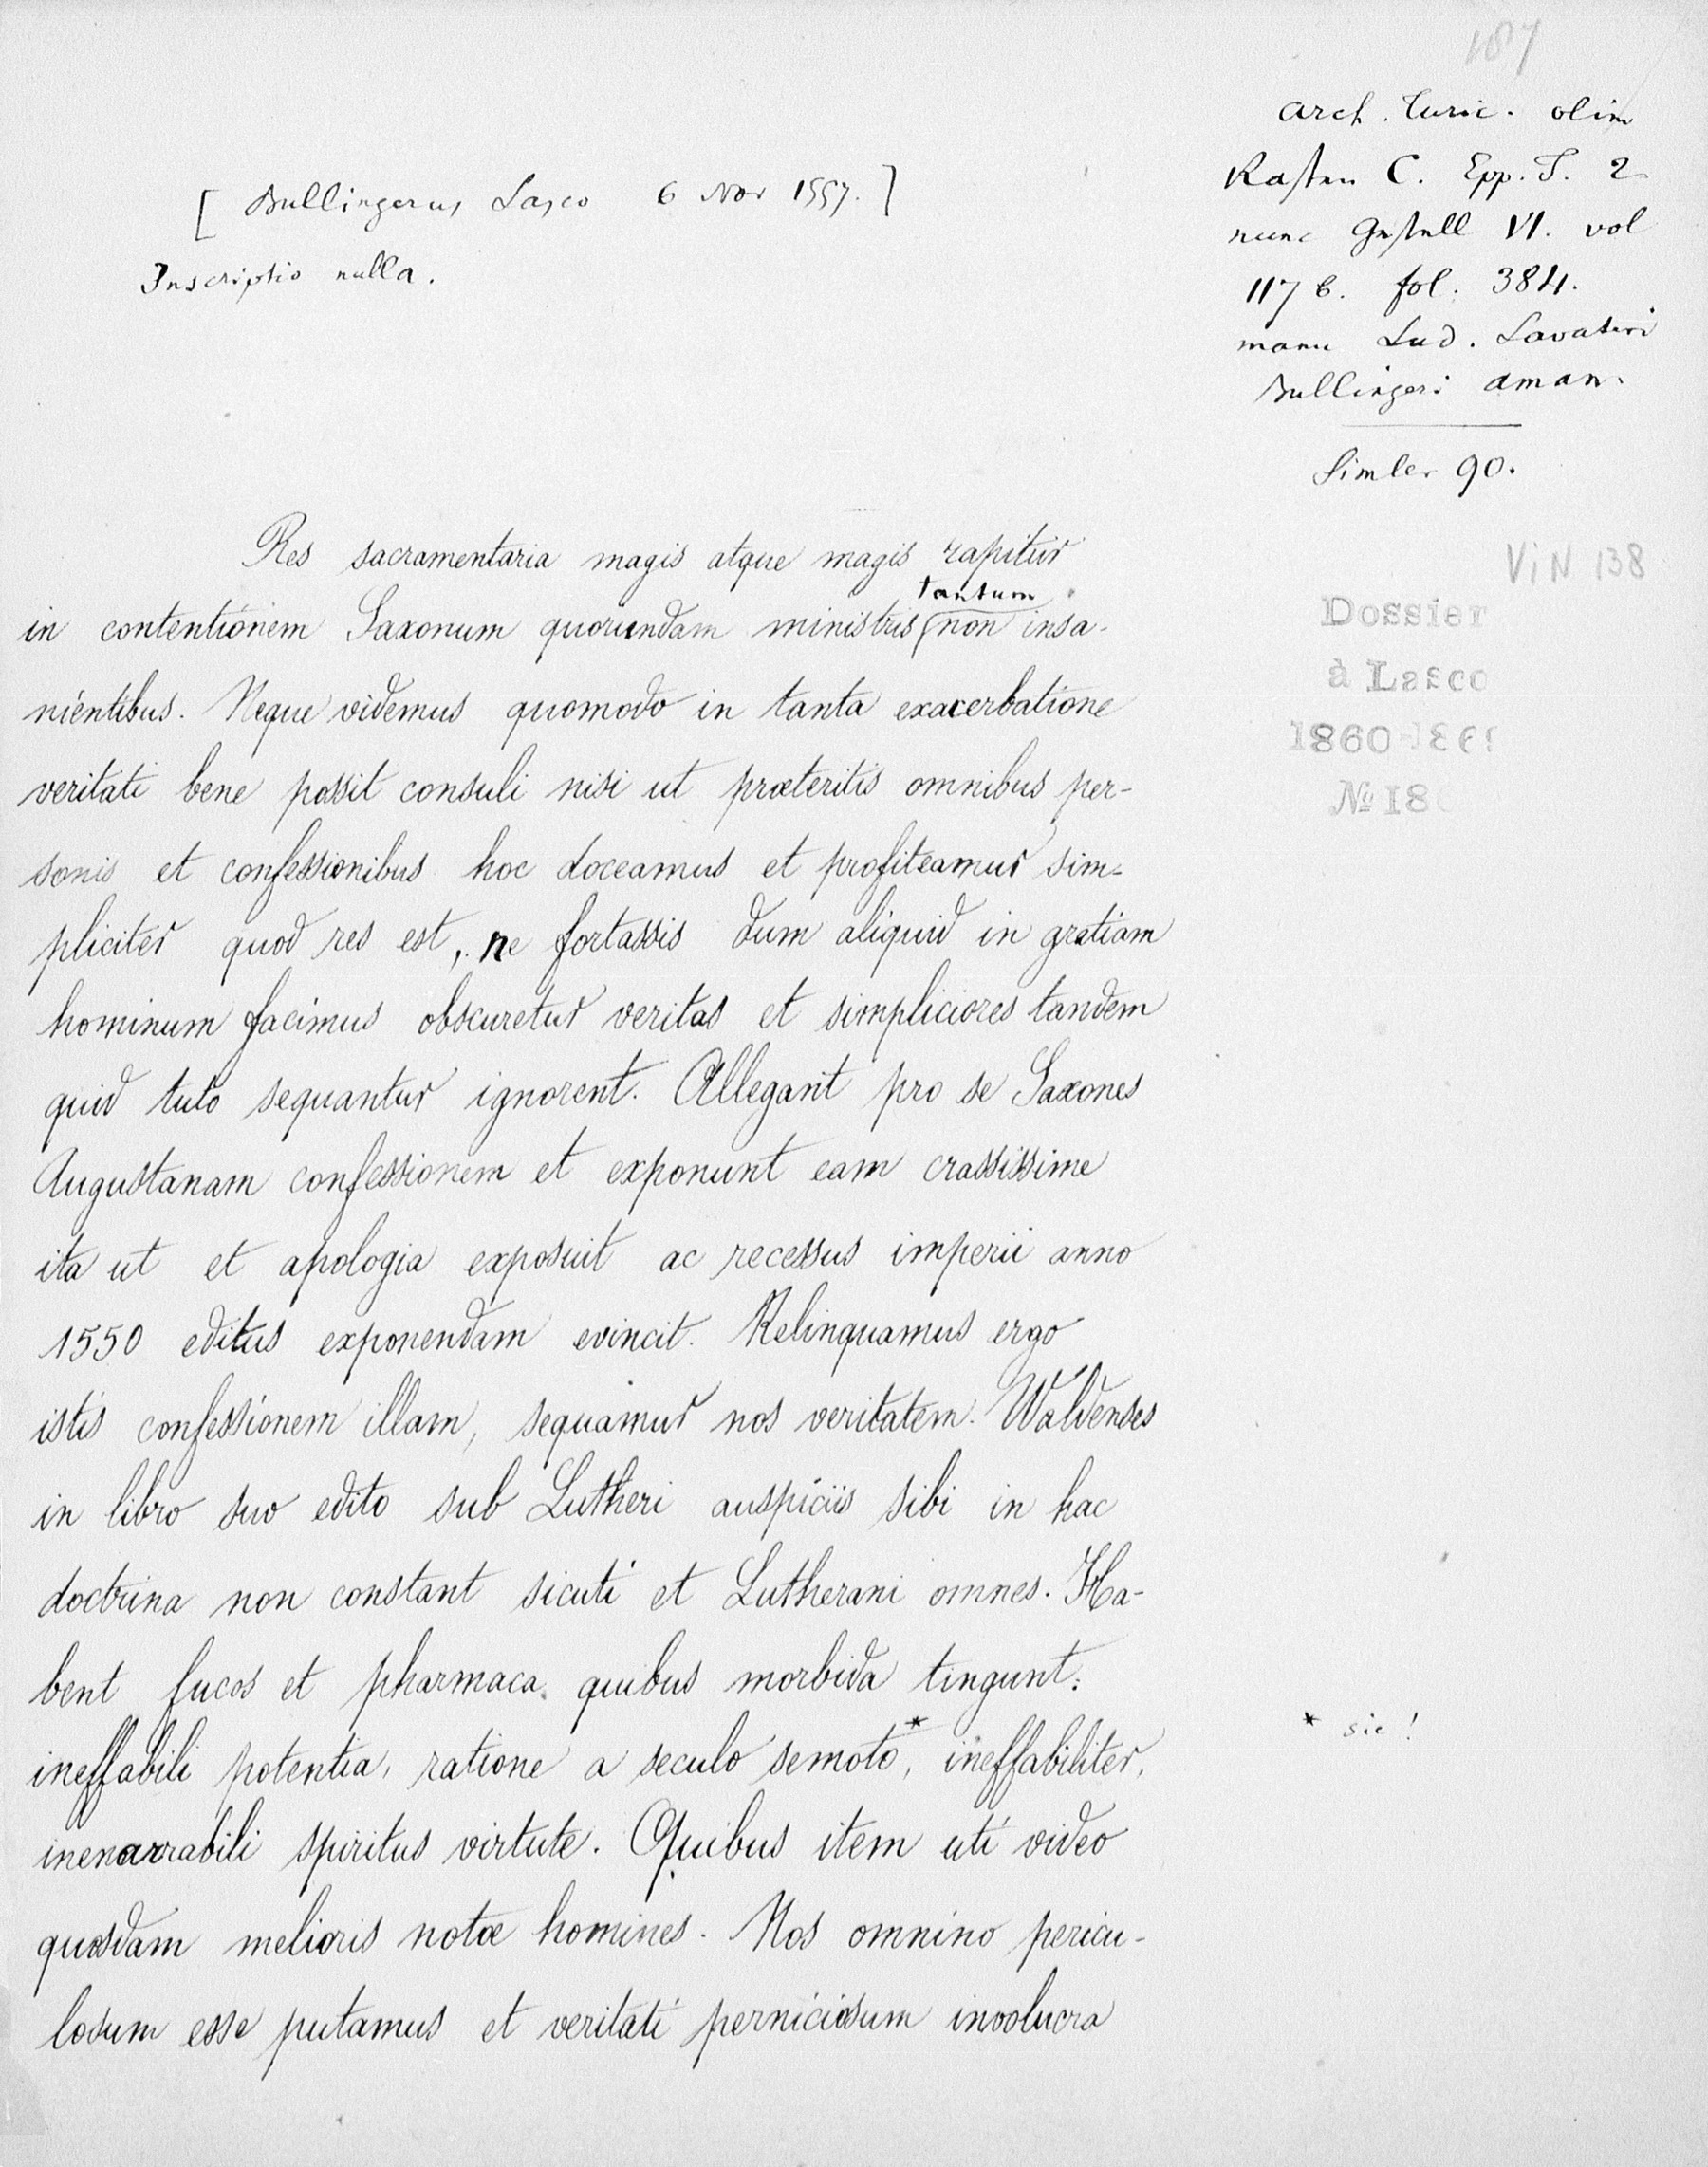 187
Arch. Turic. olim
Kasten C. Epp. T. 2
nunc Gestell VI. vol
117 b. fol. 384.
manu Lud. Lavateri
Bullingeri aman.
Simler 90.
[ Bullingerus Lasco 6 Nov 1557. ]
Inscriptio nulla.
ViN 138
Dossier
à Lasco
1860-186
№ 18
Res sacramentaria magis atque magis rapitur
tantum
in contentionem Saxonum quorundam ministris non insa-
nientibus. Neque videmus quomodo in tanta exacerbatione
veritati bene possit consuli nisi ut præteritis omnibus per-
sonis et confessionibus hoc doceamus et profiteamur sim-
pliciter quod res est, ne fortassis dum aliquid in gratiam
hominum facimus obscuretur veritas et simpliciores tandem
quid tuto sequantur ignorent. Allegant pro se Saxones
Augustanam confessionem et exponunt eam crassissime
ita ut et apologia exposuit ac recessus imperii anno
1550 editus exponendam evincit. Relinquamus ergo
istis confessionem illam, sequamur nos veritatem. Waldenses
in libro suo edito sub Lutheri auspiciis sibi in hac
doctrina non constant sicuti et Lutherani omnes. Ha-
bent fucos et pharmaca quibus morbida tingunt:
ineffabili potentia, ratione a seculo semoto*, ineffabiliter,
* sic!
inenarrabili spiritus virtute. Quibus item uti video
quosdam melioris notæ homines. Nos omnino pericu-
losum esse putamus et veritati perniciosum involucra